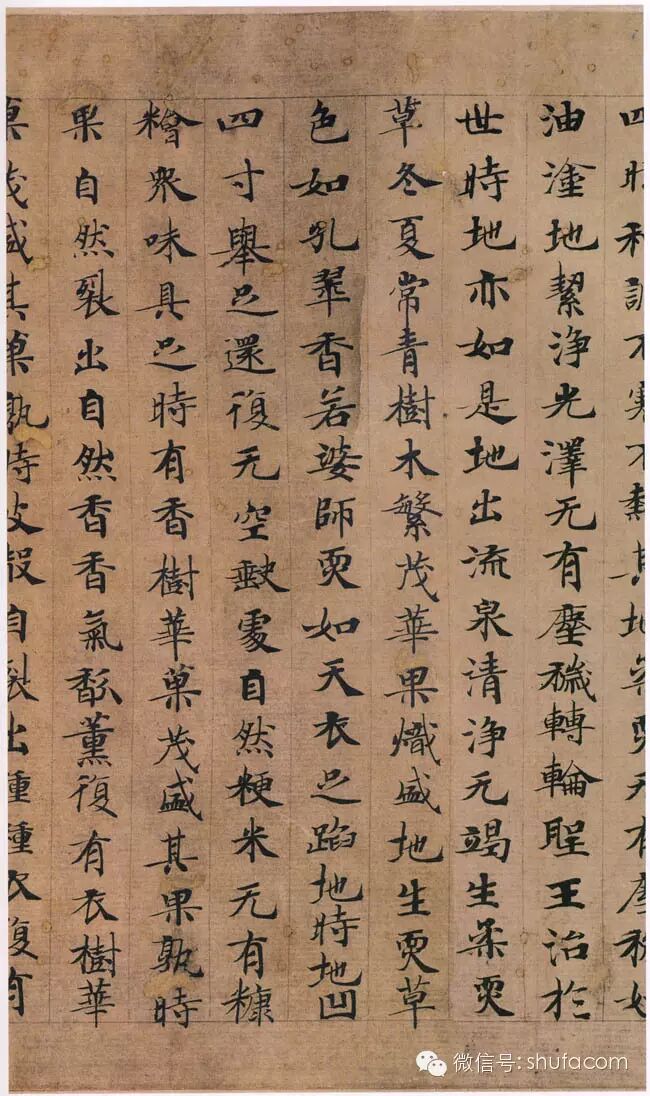 四時和調不寒不熱其地柔耎无有塵穢如
油塗地絜淨光澤无有塵穢轉輪聖王治於
世時地亦如是地出流泉清淨无竭生柔耎
草冬夏常青樹木繁茂華果熾盛地生耎草
色如孔翠香若婆師耎如天衣足蹈地時地凹
四寸舉足還復无空缺處自然粳米无有糠
糩眾味具足時有香樹華菓茂盛其果孰時
果自然裂出自然香香氣薰復有衣樹華
菓茂盛其菓孰時皮殼自裂出種種衣復有
微信号: shufacom